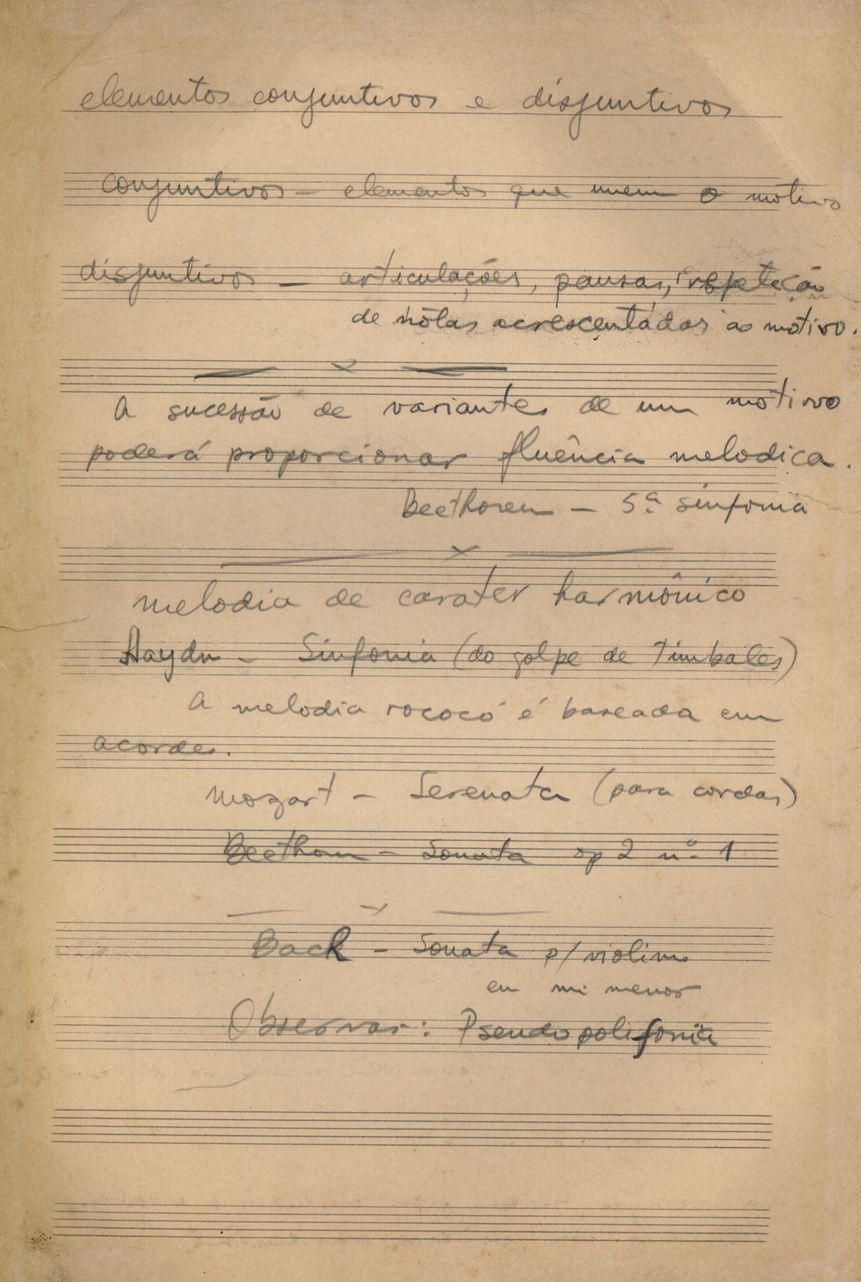 elementos conjuntivos e disjuntivos
conjuntivos – elementos que unem o motivo
disjuntivos – articulações, pausas, repetição
de nótas acrescentadas ao motivo.
A sucessão de variantes de um motivo
poderá proporcionar fluência melodica.
Beethoven – 5ª sinfonia
melodia de carater harmônico
Haydn – Sinfonia (do golpe de timbales)
A melodia rococó é baseada em
acordes.
Mozart – Serenata (para cordas)
Beethoven – Sonata op 2 nº 1
Bach – Sonata p/ violino
em mi menor
Observar: Pseudo polifonia